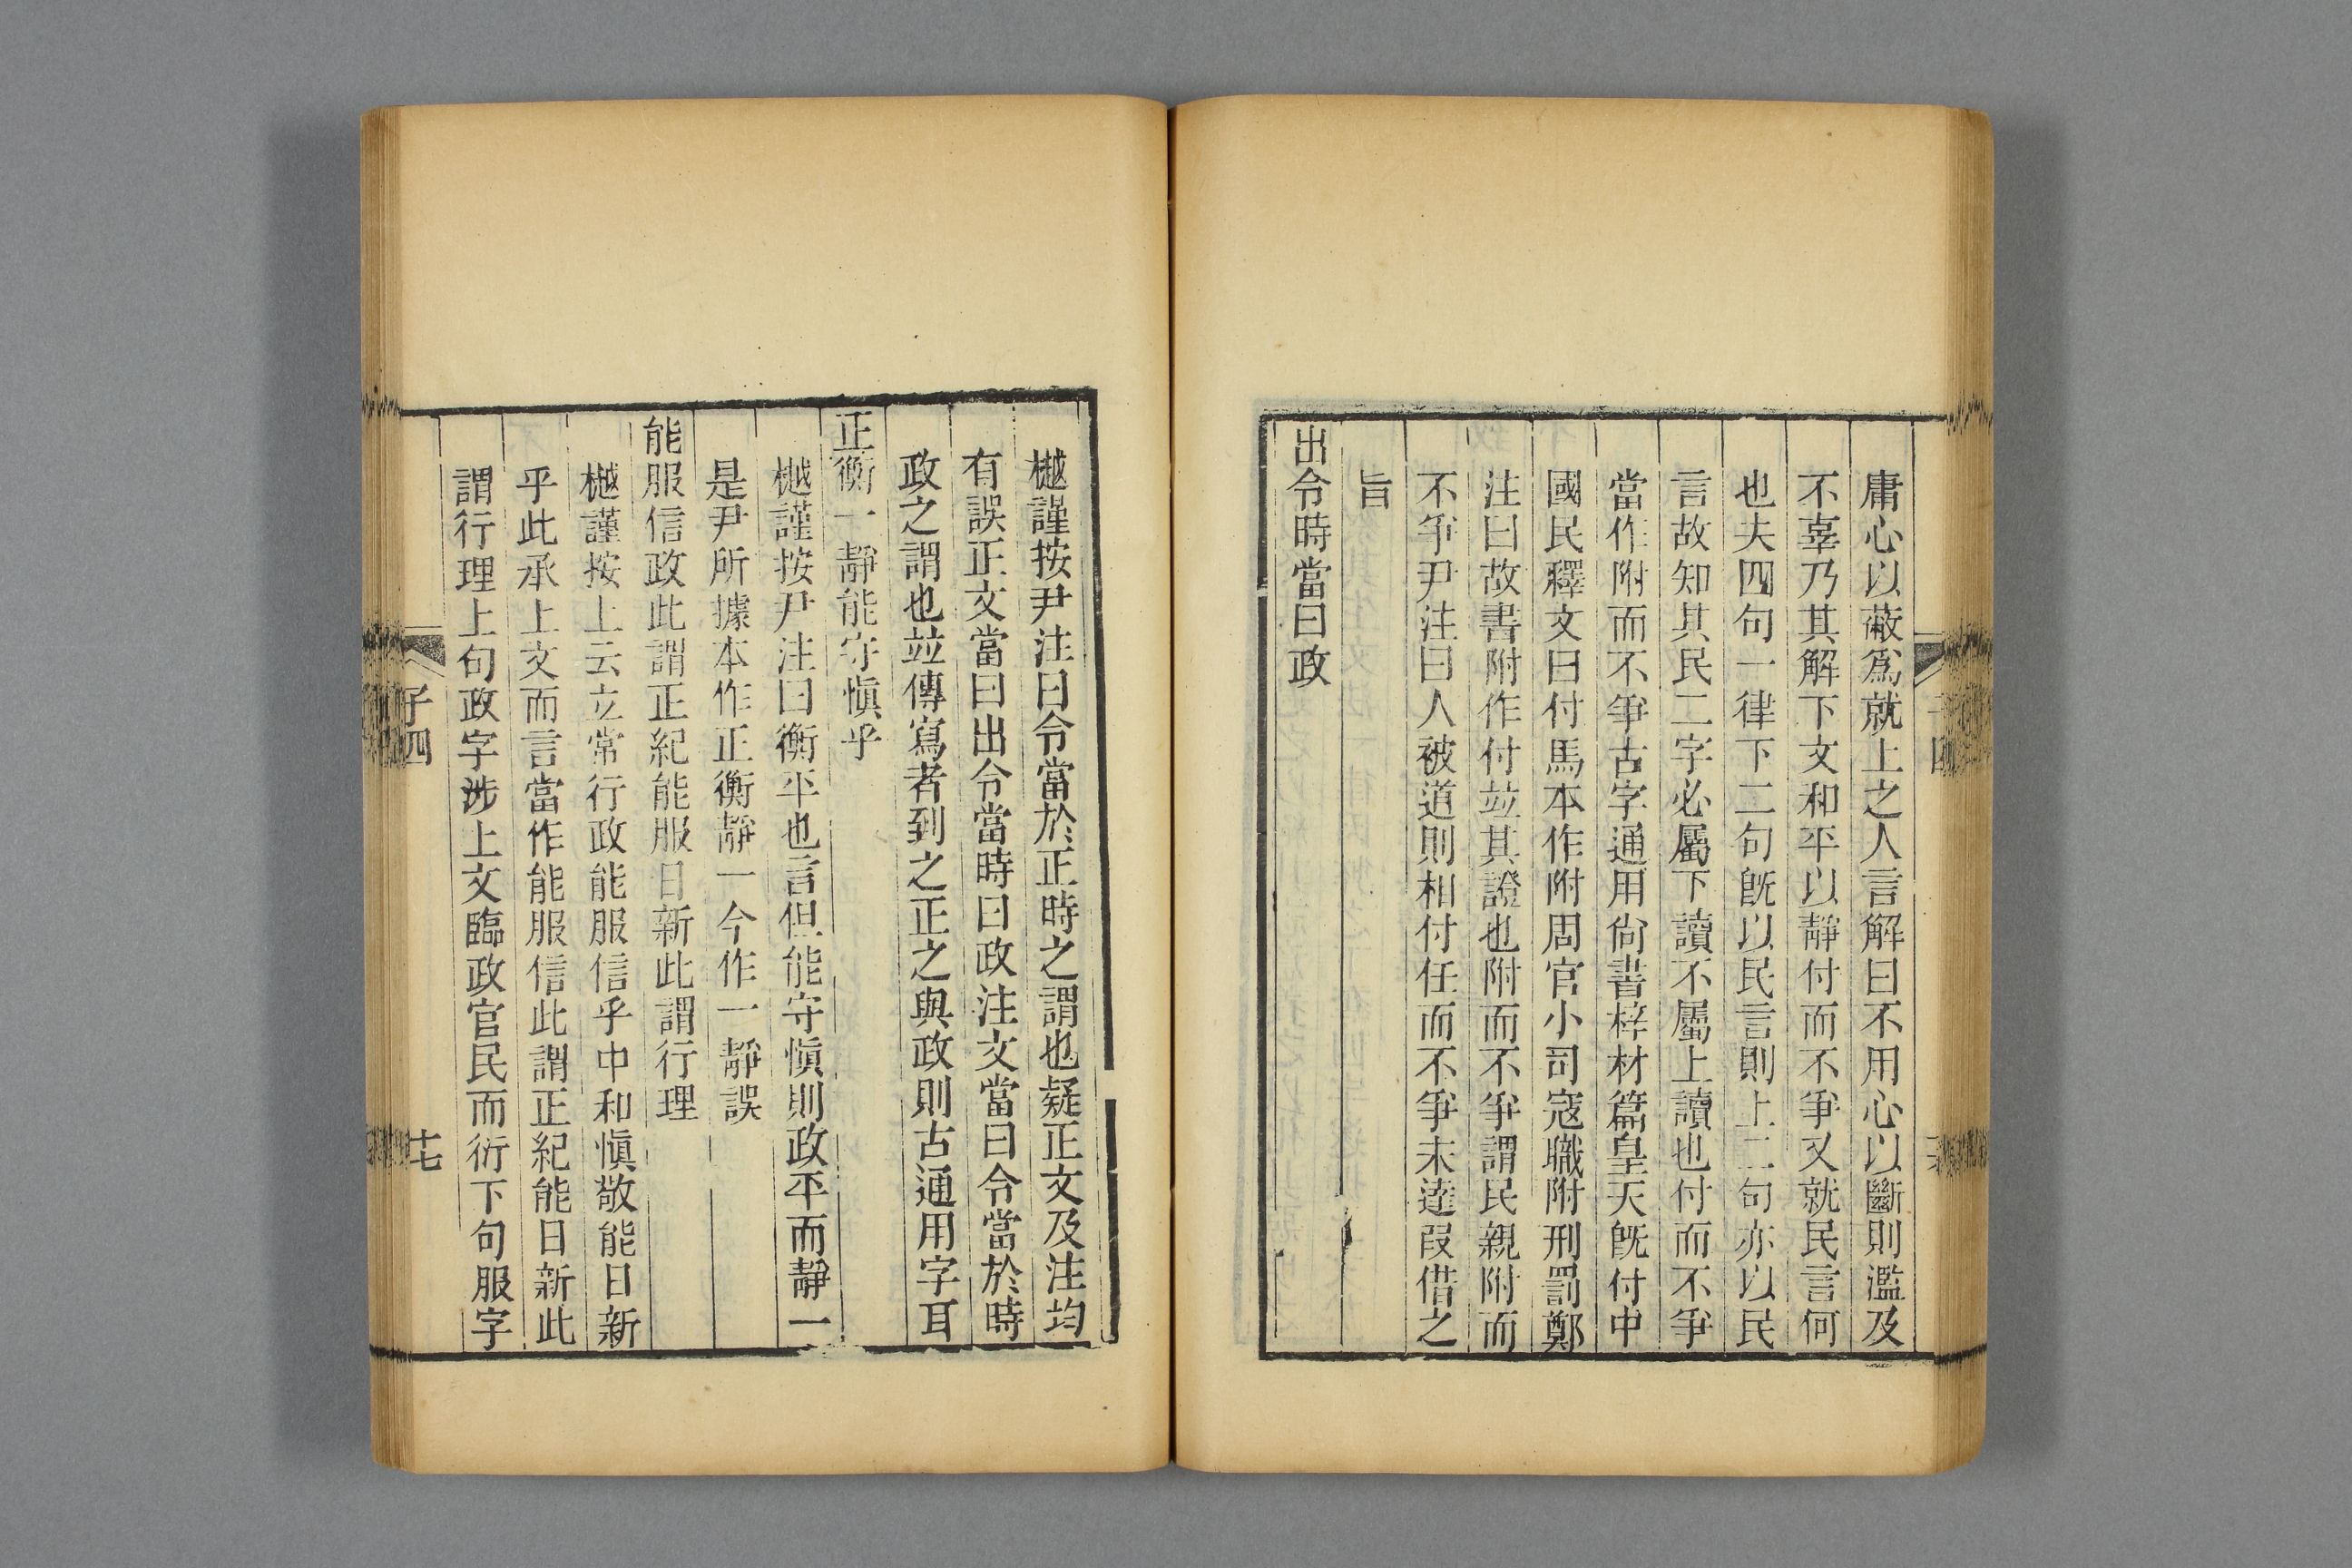 庸心以蔽爲就上之人言解曰不用心以斷則濫及
不辜乃其解下文和平以靜付而不爭又就民言何
也夫四句一律下二句旣以民言則上二句亦以民
言故知其民二字必屬下讀不屬上讀也付而不爭
當作附而不爭古字通用尙書梓材篇皇天旣付中
國民釋文曰付馬本作附周官小司寇職附刑罰鄭
注曰故書附作付竝其證也附而不爭謂民親附而
不爭尹注曰人被道則相付任而不爭未達叚借之
旨
出令時當曰政
樾謹按尹注曰令當於正時之謂也疑正文及注均
有誤正文當曰出令當時曰政注文當曰令當於時
政之謂也竝傳寫者到之正之與政則古通用字耳
正衡一靜能守愼乎
樾謹按尹注曰衡平也言但能守愼則政平而靜一
是尹所據本作正衡靜一今作一靜誤
能服信政此謂正紀能服日新此謂行理
樾謹按上云立常行政能服信乎中和愼敬能日新
乎此承上文而言當作能服信此謂正紀能日新此
謂行理上句政字涉上文臨政官民而衍下句服字
子四
十七